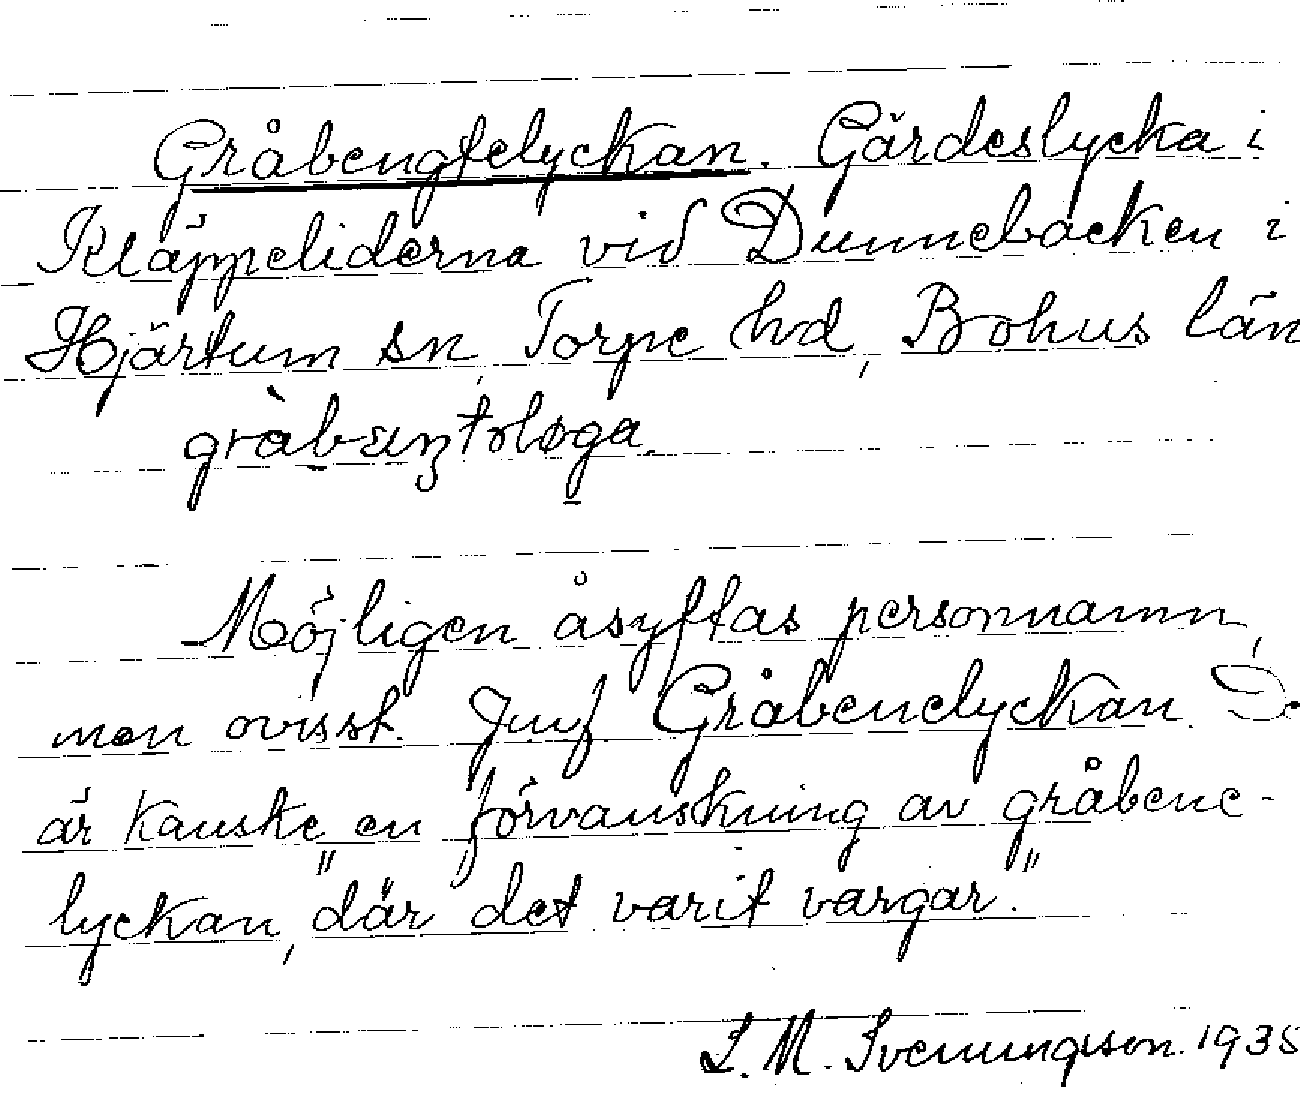 Gråbengtelyckan. Gärdeslycka i
Kläppeliderna vid Dunnebacken i
Hjärtum sn, Torpe hd, Bohus län
Möjligen åsyftas personnamn,
men ovisst. Jmf Gråbenelyckan. De
är kanske en förvanskning av gråbene-
lyckan, "där det varit vargar."
S. M. Svenungson. 1935